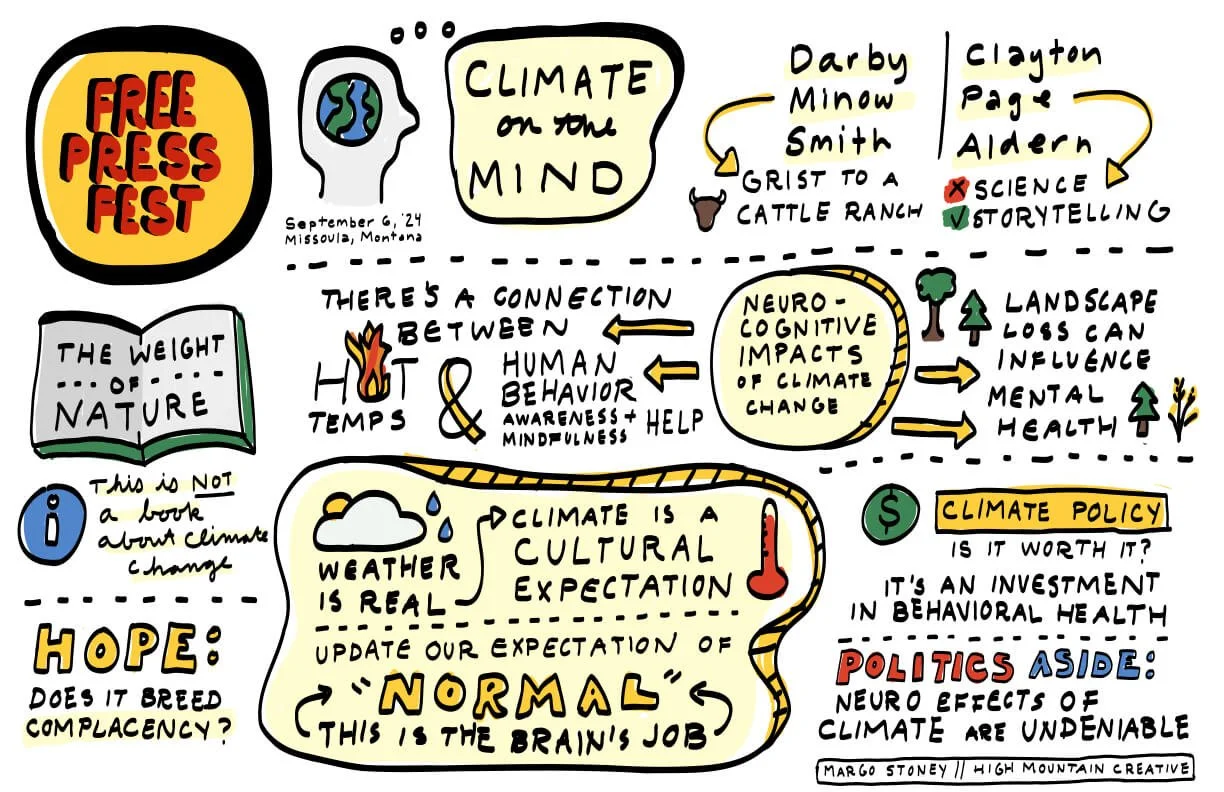 FREE
PRESS
FEST
September 6, '24
Missoula, Montana
CLIMATE
on the
MIND
Darby
Minow
Smith
GRIST TO A
CATTLE RANCH
Clayton
Page
Aldern
SCIENCE
STORYTELLING
THE WEIGHT
OF
NATURE
This is NOT
a book
about climate
change
HOPE:
DOES IT BREED
COMPLACENCY?
THERE'S A CONNECTION
BETWEEN
HOT
TEMPS
&
HUMAN
BEHAVIOR
AWARENESS +
MINDFULNESS
HELP
NEURO-
COGNITIVE
IMPACTS
OF CLIMATE
CHANGE
LANDSCAPE
LOSS CAN
INFLUENCE
MENTAL
HEALTH
WEATHER
IS REAL
CLIMATE IS A
CULTURAL
EXPECTATION
UPDATE OUR EXPECTATION OF
"NORMAL"
THIS IS THE BRAIN'S JOB
$
CLIMATE POLICY
IS IT WORTH IT?
IT'S AN INVESTMENT
IN BEHAVIORAL HEALTH
POLITICS ASIDE:
NEURO EFFECTS OF
CLIMATE ARE UNDENIABLE
MARGO STONEY // HIGH MOUNTAIN CREATIVE